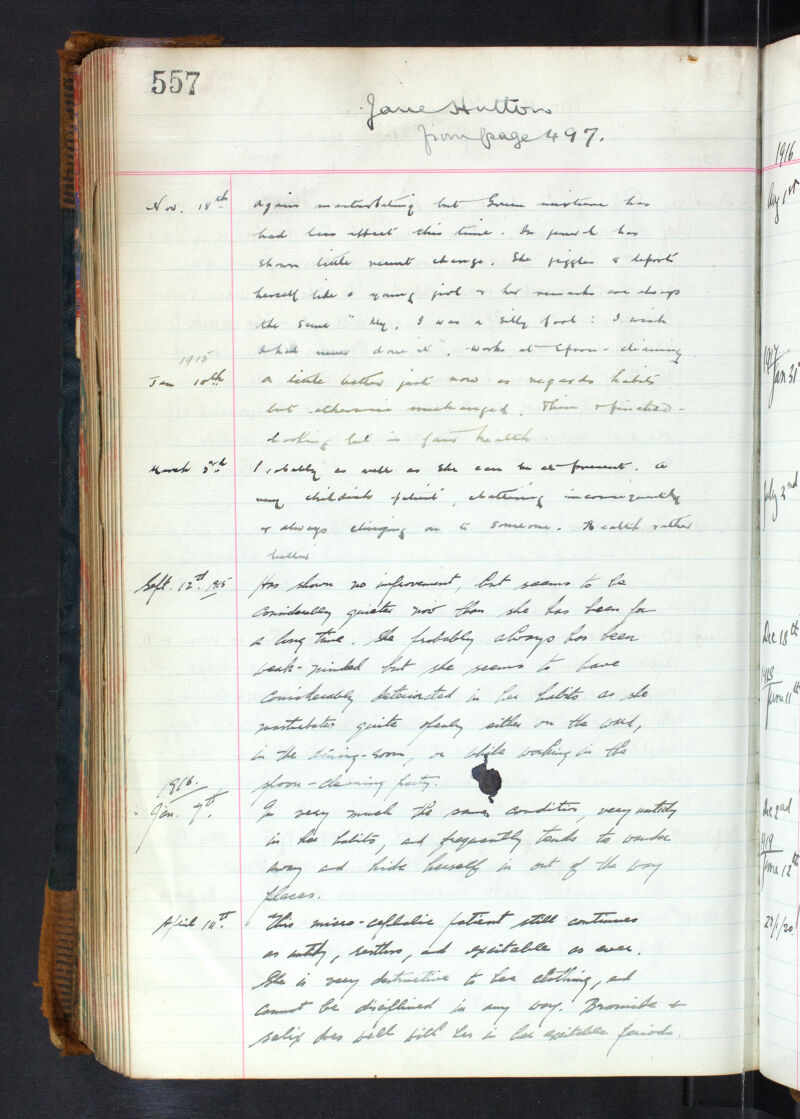 557
Jane Hutton
from page 497.
Nov. 18th Again masturbating but Green mixture has
had less effect this time. In general has
shown little recent change. She giggles & deports
herself like a young girl & her remarks are always
the same "My, I was a silly fool: I wish
I had never done it". Works at spoon-cleaning
1915
Jan 10th A little better just now as regards habits
but otherwise unchanged. Thin & pinched-
looking but in fair health
March 3rd Probably as well as she can be at present. A
very childish patient, chattering inconsequently
& always clinging on to someone. Health rather
better
Sept. 12th. 1915 Has shown no improvement, but seems to be
considerably quieter now than she has been for
a long time. She probably always has been
weak-minded but she seems to have
considerably deteriorated in her habits as she
masturbates quite openly either on the ward,
in the dining-room, or while working in the
spoon-cleaning party.
1916.
Jan. 9th. In very much the same condition, very untidy
in her habits, and frequently tends to wander
away and hide herself in out of the way
places.
April 14th. This micro-cephalic patient still continues
as untidy, restless, and excitable as ever.
She is very destructive to her clothing, and
cannot be disciplined in any way. Bromide &
salix does well with her in her excitable periods.
1916
Aug 1st
1917
Jan 31st
July 2nd
Dec 18th
1918
June 11th
Dec 2nd
1919
June 12th
23/1/20